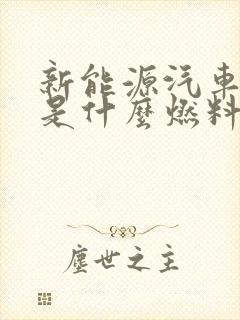 新能源汽車
是什麼燃料
塵世之主